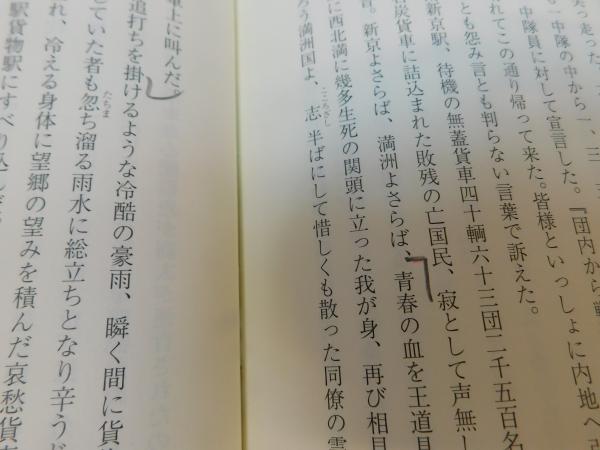 突っ走った。
一中隊の中から一、三
中隊員に対して宣言した。『団内から
れてこの通り帰って来た。皆様といっしょに内地へ
とも怨み言とも判らない言葉で訴えた。
新京駅、待機の無蓋貨車四十輌六十三団二千五百名
炭貨車に詰込まれた敗残の亡国民、寂として声無し
新京よさらば、満洲よさらば、青春の血を王道
に西北満に幾多生死の関頭に立った我が身、再び相
ろう満洲国よ、志半ばにして惜しくも散った同僚の
こころざし
上に叫んだ。
追打ちを掛けるような冷酷の豪雨、瞬く間に貨
していた者も忽ち溜る雨水に総立ちとなり辛う
たちま
れ、冷える身体に望郷の望みを積んだ哀愁貨
駅貨物駅にすべり込んだ